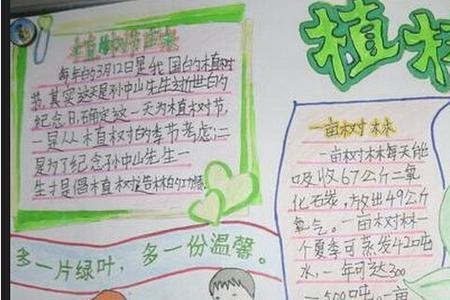 植树节由来
每年的3月12日是我国的植树
节,其实这天是孙中山先生逝世的
纪念日,确定这一天为植树节,
一是从植树的季节考虑;二
是为了纪念孙中山先生一
生才是倡植树造林的功绩
多一片绿叶,多一份温馨。
植树
一亩树林
一亩树林每天能
吸收67公斤二氧
化石炭,放出49公斤
氧气。一亩树林一
个夏季可蒸发420吨
水,一年可达300
500吨 一亩